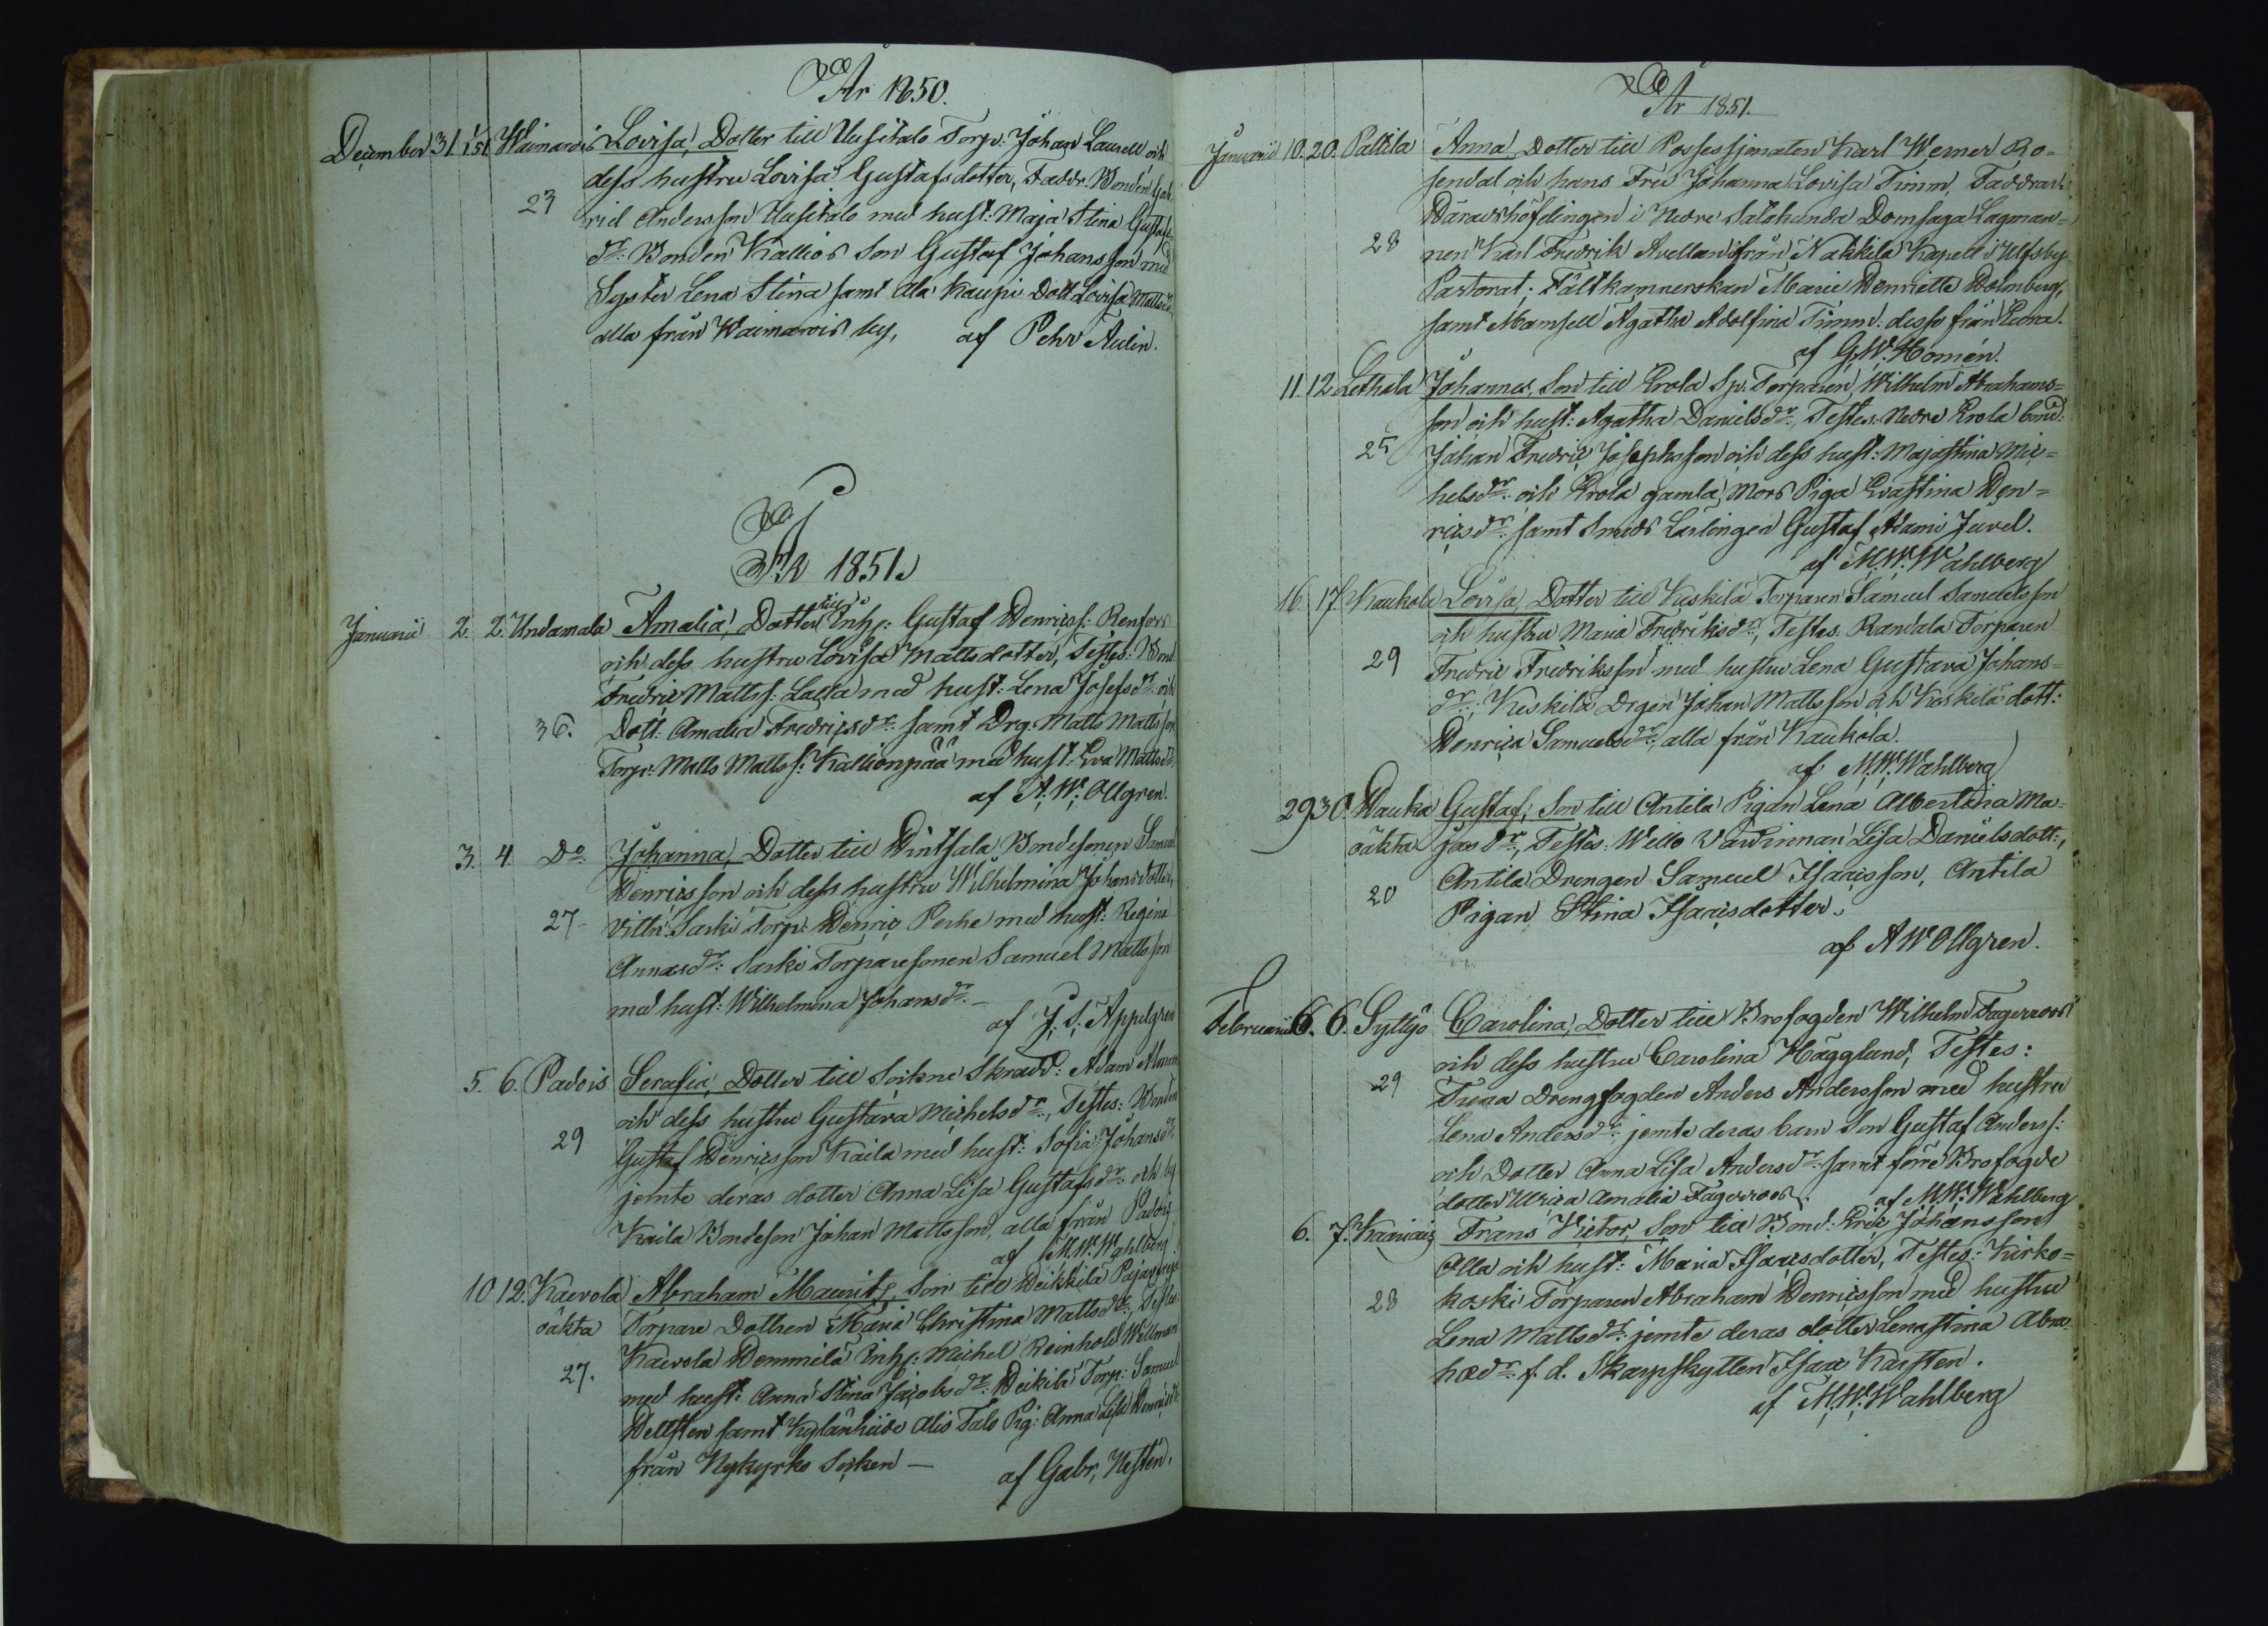 År 1850.
December 31 1/51 Waimaris Lovisa, Dotter till Uusitalo Torp: Johan Laurell och
dess hustru Lovisa Gustafsdotter, Faddr: Bonden
23 Andersson Uusitalo med hust: Maja Stina Gustafs
dr: Bonden Kallios Son Gustaf Johansson med
Syster Lena Stina samt Ala Kaupi Dott. Lovisa Mattsdr
alla från Waimaris by, af Pehr Aulin.
ÅR 1851.
Januarii 2. 2. Undamala Amalia, Dotter till Inhys: Gustaf Henricss: Renfors
och dess hustru Lovisa Mattsdotter, Testes: Bond.
Fredric Mattss: Lalla med hust: Lena Josefsdr: och
36. Dott: Amalia Fredricsdr: samt Drg: Matts Mattsson
Torp: Matts Mattss: Kallionpää med hust: Eva Mattsdr.
af A. W. Ollgren.
3. 4. Do Johanna, Dotter till Hintsala Bondesonen Samuel
Henricsson och dess hustru Wilhelmina Johansdotter,
27 Vittn: Saski Torp: Henric Perhe med hust: Regina
Annasdr: Saski Torparesonen Samuel Mattsson
med hust: Wilhelmina Johansdr.
af J. S. Appelgren
5. 6. Padois Serafia, Dotter till Sockne Skradd: Adam
och dess hustru Gustava Michelsdr:, Testes: Bonden
29 Gustaf Henricsson Kaila med hust: Sofia Johansdr.
jemte deras dotter Anna Lisa Gustafsdr: och by
Kaila Bondeson Johan Mattsson, alla från Padois
af M.W. Wahlberg
10 12. Kaerola Abraham Maurits, Son till Heikkilä
oäkta Torpare Dottren Maria Christina Mattsdr:, Testes:
Kaerola Hemmilä Inhys: Michel Reinhold Willman
27. med hust: Anna Stina Jacobsdr: Heikilä Torp: Samuel
Hellsten samt Kylänhiide Alis Talo Pig: Anna Lisa Henricsdr.
från Nykyrko Socken — af Gabr. Hesten.
År 1851.
Januarii 10. 20. Pattila Anna, Dotter till Possessionaten Karl Werner Ro=
sendal och hans Fru Johanna Lovisa Timm, Faddrar:
Häradshöfdingen i Nedre Satakunda Domsaga Lagman=
28 nen Karl Fredrik Avellan från Nakkila Kapell i Ulfsby
Pastorat; Fältkamrerskan Marie Henriette Holmberg,
samt Mamsell Agatha Adolfina Timm: dessa från Eura.
af G.W. Homén.
11. 12 Lethala Johannes, Son till Erola Sp. Torparen Wilhelm Abrahams=
son och hust: Agatha Danielsdr:, Testes: Nedre Erola bond:
25 Johan Fredric Josephsson och dess hust: Majastina Mic=
helsdr: och Erola gamla Mors Piga Evastina Hen=
ricsdr: samt Smeds Lärlingen Gustaf Adam Juvel.
af M.W. Wahlberg
16. 17. Kaukola Lovisa, Dotter till Keskilä Torparen Samuel Samuelsson
och hustru Maria Fredriksdr:, Testes: Randala Torparen
29 Fredric Fredriksson med hustru Lena Gustava Johans=
dr:; Keskilä Drgen Johan Mattsson och Koskilä dott:
Henrica Samuelsdr:, alla från Kaukola.
af M.W. Wahlberg
29 30. Hauka Gustaf, Son till Antila Pigan Lena Albertina Ma=
oäkta jasdr:, Testes: Wello Lisa Danielsdott:,
20 Antila Drengen Samuel Isacsson, Antila
Pigan Stina Isacsdotter.
af A W Ollgren.
Februarii 6. 6. Syttyö Carolina, Dotter till Brofogden Wilhelm Fagerroos
och dess hustru Carolina Häggland, Testes:
29 Drengfogden Anders Andersson med hustru
Lena Andersdr: jemte deras barn Son Gustaf Anderss:
och Dotter Anna Lisa Andersdr: samt förre Brofogde
dotter Ulrica Amalia Fagerroos. af M.W. Wahlberg
6. 7. Kaurais Frans Victor, Son till Bond: Eric Johansson
Olla och hust: Maria Isacsdotter, Testes: Kirko=
28 koski Torparen Abraham Henricsson med hustru
Lena Mattsdr: jemte deras dotter Lenastina Abra=
hadr: f. d. Skarpskytten Isac Karsten.
af M.W. Wahlberg